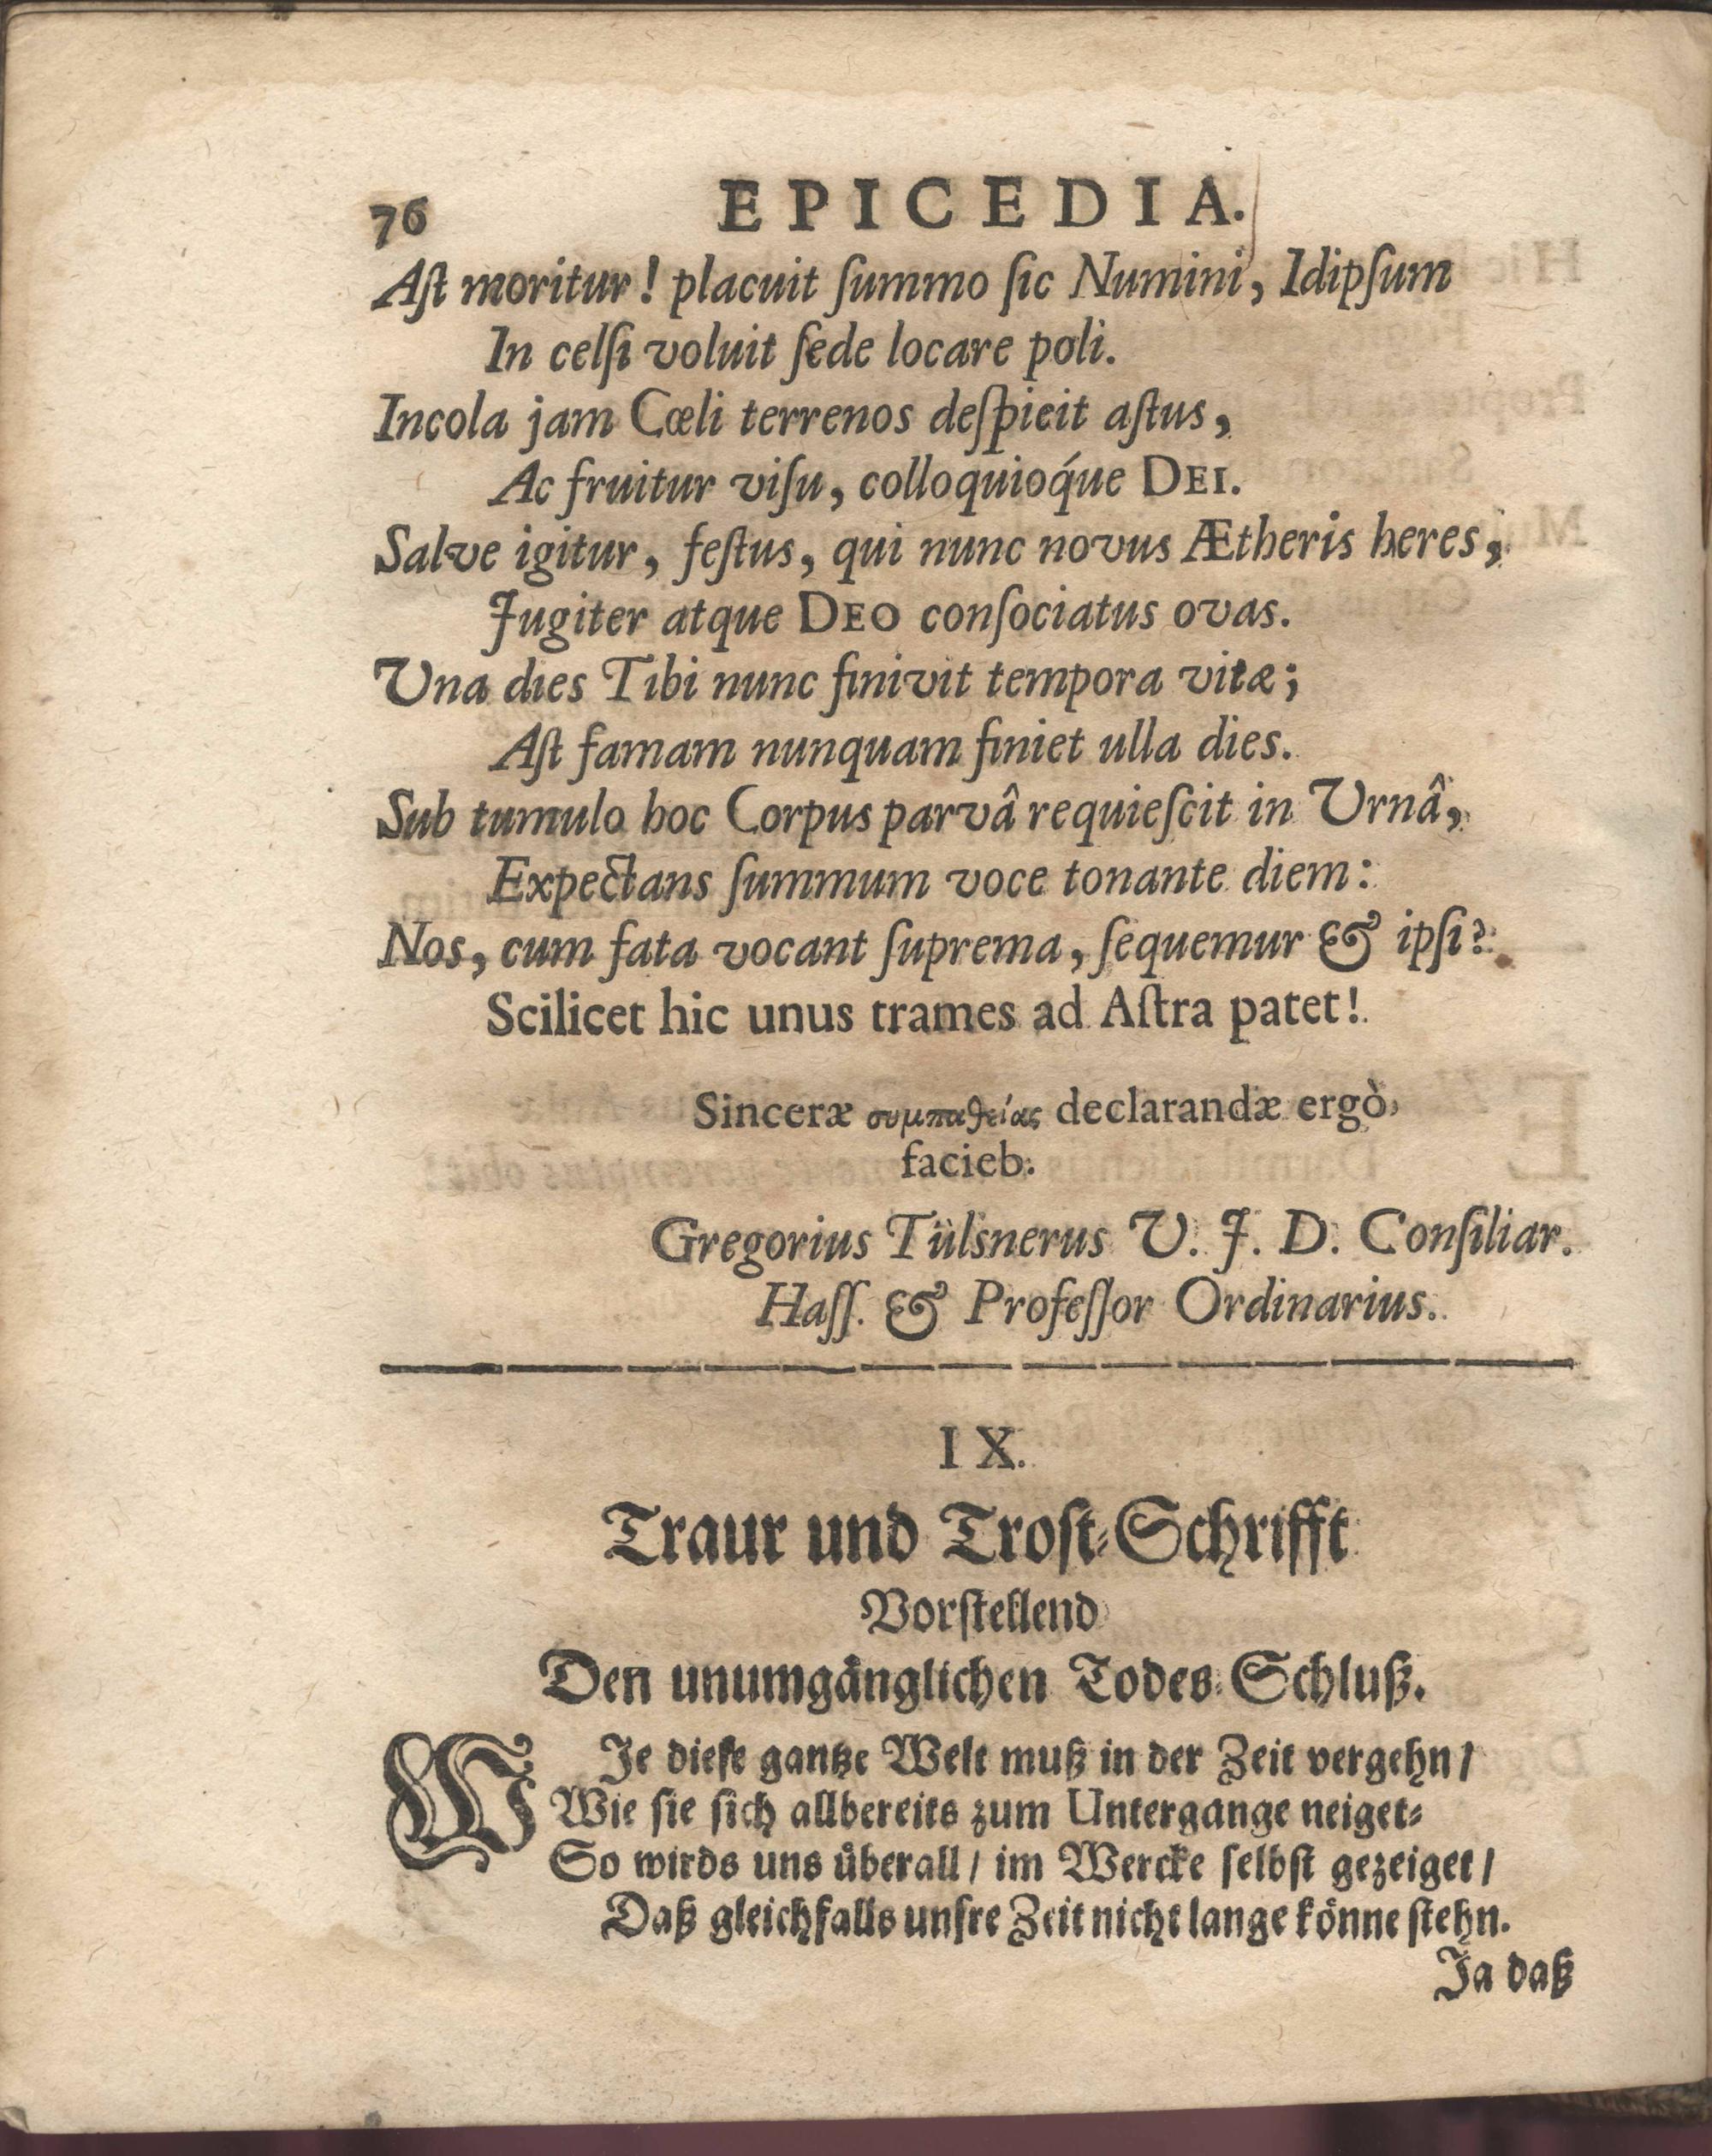 76 EPICEDIA.
Aſt moritur! placuit ſummo ſic Numini, Idipſum
In celſi voluit ſede locare poli.
Incola jam Cœli terrenos deſpicit aſtus,
Ac fruitur viſu, colloquioq́ue DEI.
Salve igitur, feſtus, qui nunc novus Ætheris heres,
Jugiter atque DEO conſociatus ovas.
Vna dies Tibi nunc finivit tempora vitæ;
Aſt famam nunquam finiet ulla dies.
Sub tumulo hoc Corpus parvâ requieſcit in Vrnâ,
Expectans ſummum voce tonante diem:
Nos, cum fata vocant ſuprema, ſequemur & ipſi?
Scilicet hic unus trames ad Aſtra patet!
Sinceræ συμπαθείας declarandæ ergò,
facieb.
Gregorius Tülsnerus V. J. D. Conſiliar.
Haſſ. & Profeſſor Ordinarius.
IX.
Traur und Troſt-Schrifft
Vorſtellend
Den unumgänglichen Todes-Schluß.
WJe dieſe gantze Welt muß in der Zeit vergehn /
Wie ſie ſich allbereits zum Untergange neiget-
So wirds uns uͤberall / im Wercke ſelbſt gezeiget /
Daß gleichfalls unſre Zeit nicht lange koͤnne ſtehn.
Ja daß